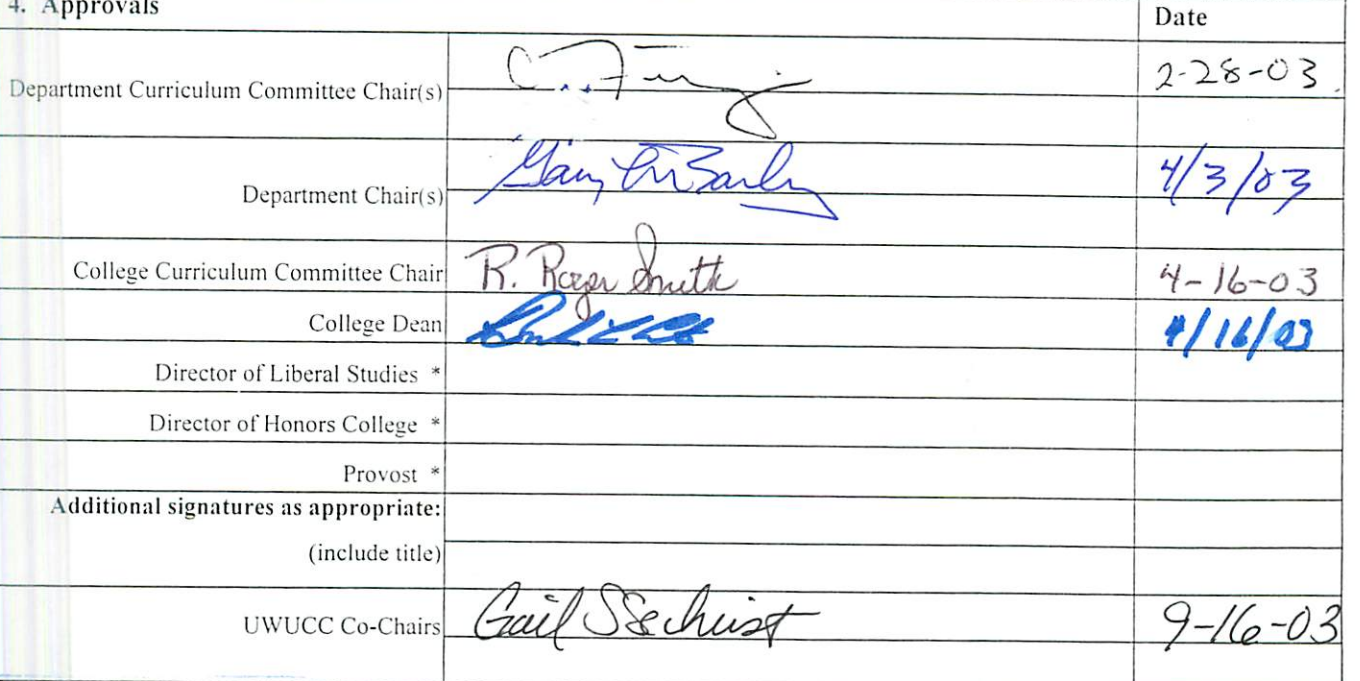 4. Approvals
Date
Department Curriculum Committee Chair(s) 2-28-03
Department Chair(s) Gary 4/3/03
College Curriculum Committee Chair R. Roger Smith 4-16-03
College Dean 4/16/03
Director of Liberal Studies *
Director of Honors College *
Provost *
Additional signatures as appropriate:
(include title)
UWUCC Co-Chairs Gail S Sechrist 9-16-03